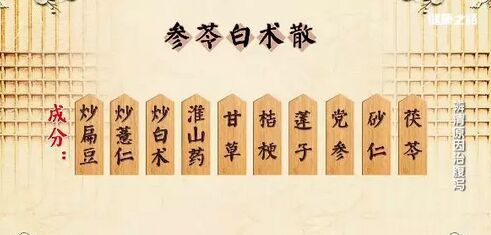 健康之路
参苓白术散
成分：
炒扁豆
炒薏仁
炒白术
淮山药
甘草
桔梗
莲子
党参
砂仁
茯苓
辨清原因治腹泻